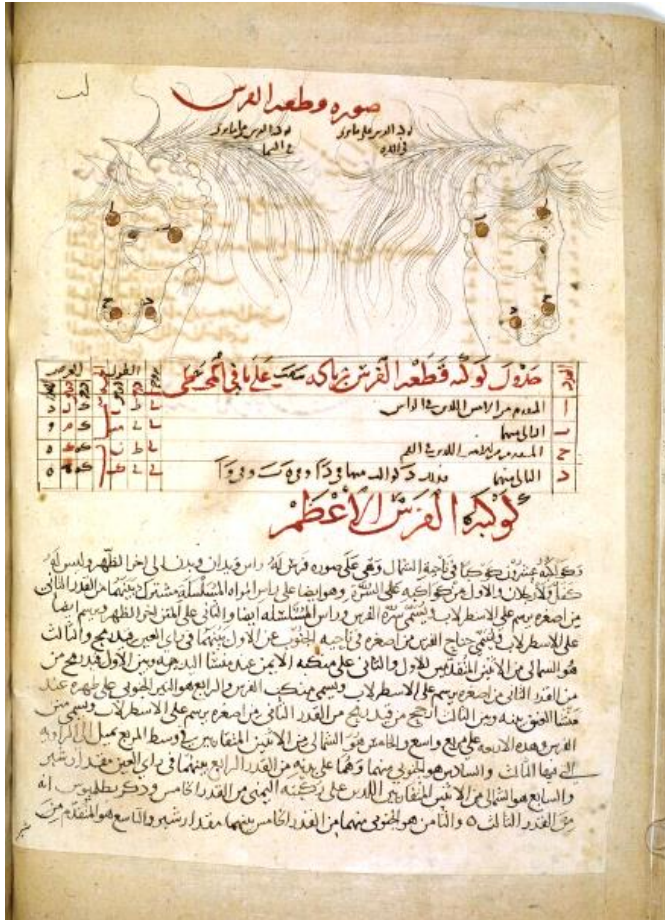 صوره قطعه الفرس
جدول كوكبه قطعه الفرس
المقدم من الاثنين اللذين في الراس
التالي منهما
المقدم من الاثنين اللذين في الفم
التالي منهما
كوكبه الفرس الاعظم
وكواكبه عشرون كوكبا في ناحيه الشمال وهي على صوره فرس له راس ويدان وبدن الى اخر الظهر وليس له
كفل ولا رجلان والاول من كواكبه على السره وهو ايضا على راس المراه المسلسله مشترك بينهما من القدر الثاني
من اصغره يرسم على الاسطرلاب ويسمى سره الفرس وراس المسلسله ايضا والثاني على المتن اخر الظهر ويرسم ايضا
على الاسطرلاب ويسمى جناح الفرس من اصغره في ناحيه الجنوب عن الاول بينهما في راي العين قيد رمح والثالث
هو الشمالي من الاثنين المتقدمين للاول والثاني على منكبه الايمن عند منشا اليد وبينه وبين الاول قيد رمح من
من القدر الثاني من اصغره يرسم على الاسطرلاب ويسمى منكب الفرس والرابع هو النير الجنوبي على ظهره عند
منشا العنق بينه وبين الثالث ارجح من قيد رمح من القدر الثاني من اصغره يرسم على الاسطرلاب ويسمى متن
الفرس وهذه الاربعه على مربع واسع والخامس هو الشمالي من الاثنين المتقاربين في وسط المربع يميل الى الزاويه
التي فيها الثالث والسادس هو الجنوبي منهما وهما على بدنه من القدر الرابع بينهما في راي العين مقدار شبر
والسابع هو الشمالي من الاثنين المتقاربين اللذين على ركبته اليمنى من القدر الخامس وذكر بطلميوس انه
من القدر الثالث والثامن هو الجنوبي منهما من القدر الخامس بينهما مقدار شبر والتاسع هو المتقدم من